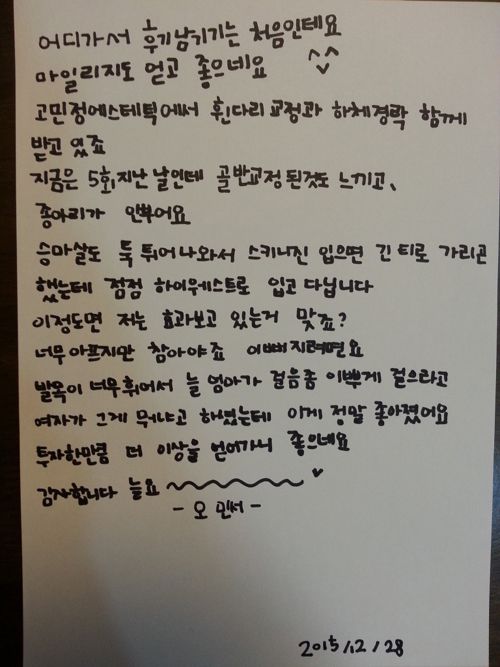 어디가서 후기남기기는 처음인테요
마일리지도 얻고 좋으네요 ^^
고민정에스테틱에서 휜다리교정과 하체경락 함께
받고 있죠
지금은 5회지난날인테 골반교정된것도 느끼고,
종아리가 인뿌어요
승마살도 툭 튀어나와서 스키니진 입으면 긴 티로 가리곤
했는테 점점 하이웨스트로 입고 다닙니다
이정도면 저는 효과보고 있는거 맞죠?
너무아프지만 참아야죠 이뻐지려면요
발목이 너무휘어서 늘 엄마가 걸음좀 이쁘게 걸으라고
여자가 그게 뭐냐고 하셨는테 이게 정말 좋아졌어요
투자한만큼 더 이상을 얻어가니 좋으네요
감사합니다 늘요 ~~~~~ ♥
- 오 민서 -
2015/12/28